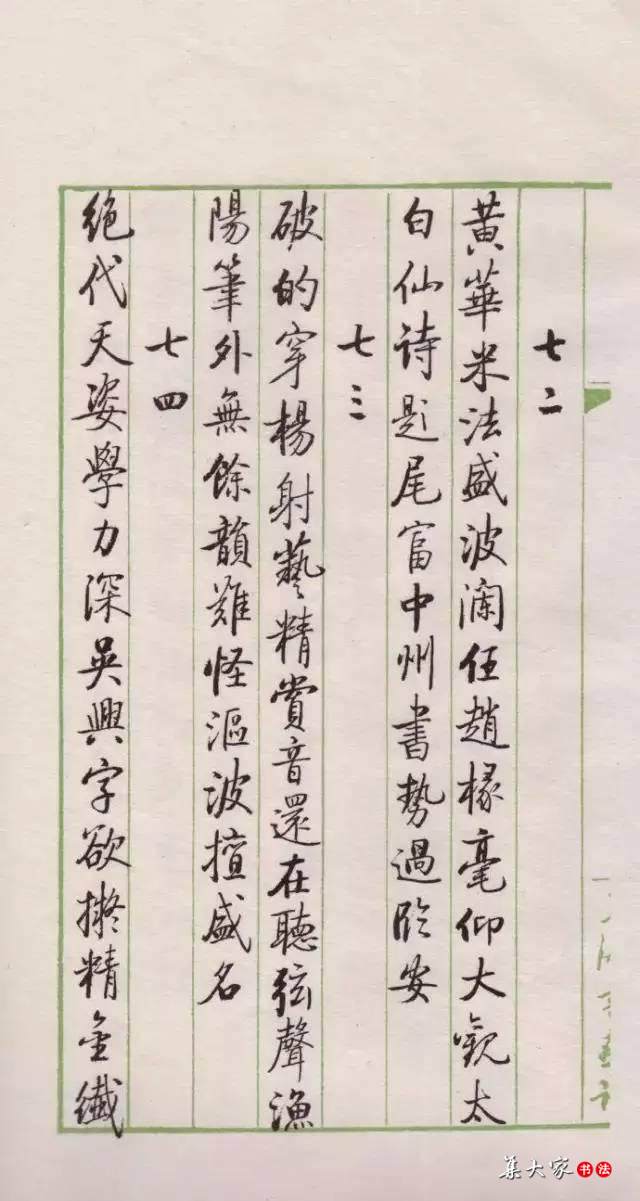 七二
黃華米法盛波瀾任趙椽毫仰大觀太
白仙诗題尾富中州書势過臨安
七三
破的穿楊射藝精賞音還在聽弦聲漁
陽筆外無餘韻難怪漚波擅盛名
七四
絶代天姿學力深吳興字欲擬精金纖
集大家书法